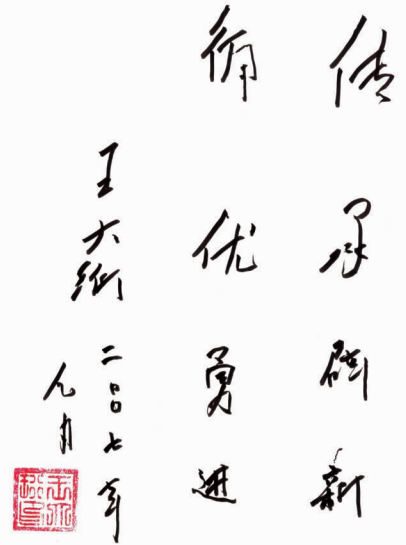 传承辟新
循优勇进
王大珩
二〇〇七年
元月